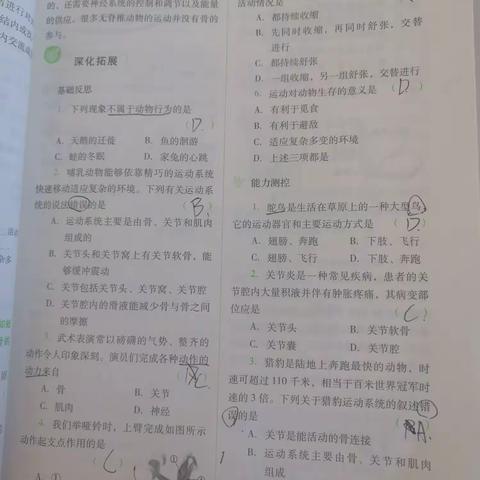 的、还需要神经系统的控制和调节以及能量
的供应。很多无脊椎动物的运动并没有骨的
参与。
深化拓展
基础反思
1. 下列现象不属于动物行为的是
( D. )
A. 天鹅的迁徙 B. 鱼的洄游
C. 蛙的冬眠 D. 家兔的心跳
2. 哺乳动物能够依靠精巧的运动系统
快速移动适应复杂的环境。下列有关运动系
统的说法错误的是 ( B. )
A. 运动系统主要是由骨、关节和肌肉
组成的
B. 关节头和关节窝上有关节软骨，能
够缓冲震动
C. 关节包括关节头、关节窝、关节腔
D. 关节腔内的滑液能减少骨与骨之间
的摩擦
3. 武术表演常以磅礴的气势、整齐的
动作令人印象深刻。演员们完成各种动作的
动力来自 ( C )
A. 骨 B. 关节
C. 肌肉 D. 神经
4. 我们举哑铃时，上臂完成如图所示
动作起支点作用的是 ( C )
A. ① ①
活动情况是
A. 都持续收缩
B. 先同时收缩，再同时舒张，交替
进行
C. 都持续舒张
D. 一组收缩，另一组舒张，交替进行
6. 运动对动物生存的意义是 ( D. )
A. 有利于觅食
B. 有利于避敌
C. 适应复杂多变的环境
D. 上述三项都是
能力测控
1. 鸵鸟是生活在草原上的一种大型鸟，
它的运动器官和主要运动方式是 ( D. )
A. 翅膀、奔跑 B. 下肢、飞行
C. 翅膀、飞行 D. 下肢、奔跑
2. 关节炎是一种常见疾病，患者的关
节腔内大量积液并伴有肿胀疼痛，其病变部
位应是 ( C? )
A. 关节头 B. 关节软骨
C. 关节囊 D. 关节腔
3. 猎豹是陆地上奔跑最快的动物，时
速可超过 110 千米，相当于百米世界冠军时
速的 3 倍。下列关于猎豹运动系统的叙述错
误的是 ( A. )
A. 关节是能活动的骨连接
B. 运动系统主要由骨、关节和肌肉
组成